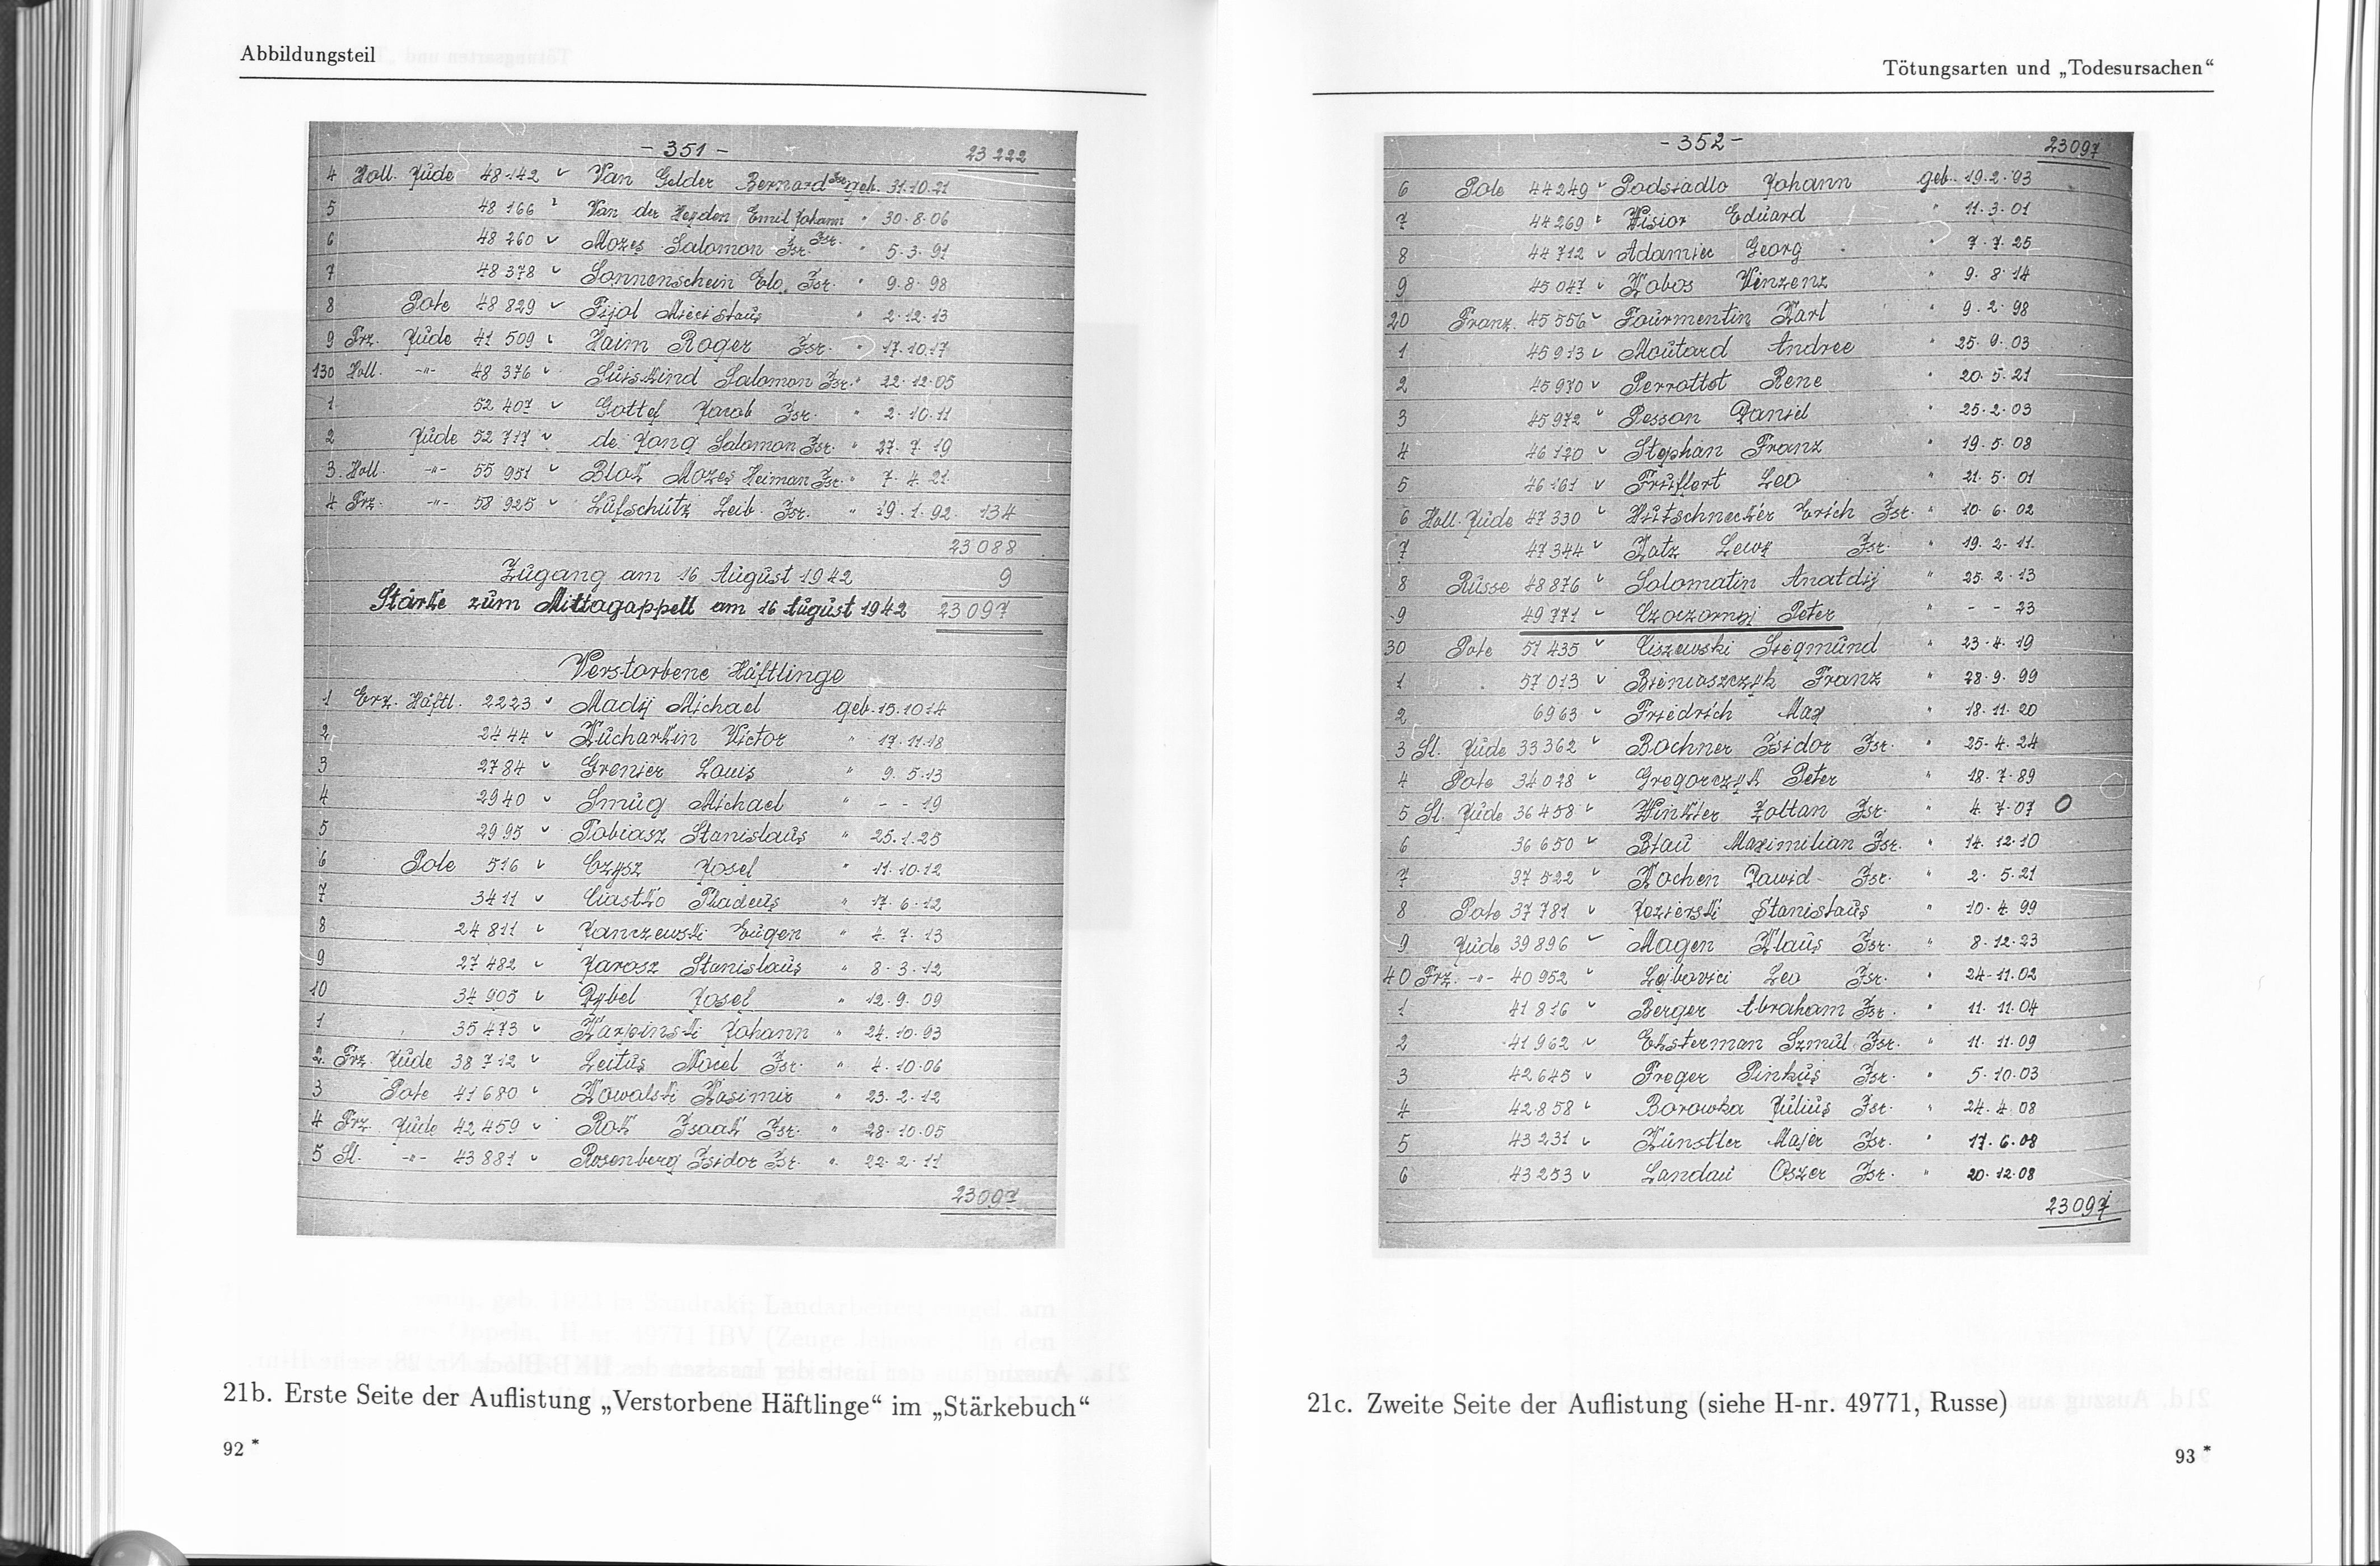 Abbildungsteil
- 351 -
23 222
4 Holl. Jude 48142 Van Gelder Bernard Isr. geb. 31.10.21
5 48 166 Van der Heyden Emil Johann " 30.8.06
6 48 260 Mozes Salomon Isr. Isr. " 5.3.91
7 48 378 Sonnenschein Isr. " 9.8.98
8 Pole 48 829 Fijol " 2.12.13
9 Frz. Jude 41 509 Haim Roger Isr. " 17.10.17
130 Holl. -"- 48 376 Süiskind Salomon Isr. " 22.12.05
1 52 407 Jacob Isr. " 2.10.11
2 Jude 52 717 de Jong Salomon Isr. " 27.7.19
3 Holl. -"- 55 951 Blok Mozes Heiman Isr. " 7.4.21
4 Frz. -"- 58 925 Lüfschütz Leib Isr. " 19.1.92 134
23 088
Zugang am 16 August 1942 9
Stärke zum Mittagappell am 16 August 1942 23 097
Verstorbene Häftlinge
1 Erz. Häftl. 2223 Madij Michael geb. 15.10 14
2 2444 Kucharkin Victor " 17.11.18
3 2784 Grenier Louis " 9.5.13
4 2940 Smug Michael " - - 19
5 2995 Tobiasz Stanislaus " 25.1.25
6 Pole 516 Czysz Josef " 11.10.12
7 3411 Ciastko Thadeus " 17.6.12
8 24 811 Janczewski Eugen " 4.7.13
9 27 482 Jarosz Stanislaus " 8.3.12
10 34 905 Rybel Josef " 12.9.09
1 35 473 Karpinski Johann " 24.10.93
2 Frz. Jude 38 712 Leitus Isr. " 4.10.06
3 Pole 41 680 Kowalski Kasimir " 23.2.12
4 Frz. Jude 42 459 Rok Isaak Isr. " 28.10.05
5 Sl. -"- 43 881 Rosenberg Isidor Isr. " 22.2.11
23097
21b. Erste Seite der Auflistung „Verstorbene Häftlinge“ im „Stärkebuch“
92 *
Tötungsarten und „Todesursachen“
- 352 -
23097
6 Pole 44249 Podsiadlo Johann geb. 19.2.93
7 44269 Wisior Eduard " 11.3.01
8 44712 Adamiec Georg " 7.7.25
9 45047 Kobos Vinzenz " 9.8.14
20 Franz. 45556 Fourmentin Karl " 9.2.98
1 45913 Moutard Andree " 25.9.03
2 45970 Perrottot Rene " 20.5.21
3 45972 Pesson Daniel " 25.2.03
4 46120 Stephan Franz " 19.5.08
5 46161 Leo " 21.5.01
6 Holl. Jude 47330 Hutschnecker Erich Isr. " 10.6.02
7 47344 Katz Isr. " 19.2.11
8 Russe 48876 Solomatin Anatolij " 25.2.13
9 49771 Czoczornyj Peter " - - 23
30 Pole 51435 Ciszewski Siegmund " 23.4.19
1 57013 Bieniaszczyk Franz " 28.9.99
2 6963 Friedrich Max " 18.11.20
3 Sl. Jude 33362 Bochner Isidor Isr. " 25.4.24
4 Pole 34028 Gregorczyk Peter " 18.7.89
5 Sl. Jude 36458 Winkler Zoltan Isr. " 4.7.07 O
6 36650 Blau Maximilian Isr. " 14.12.10
7 37522 Kochen Dawid Isr. " 2.5.21
8 Pole 37781 Jezierski Stanislaus " 10.4.99
9 Jude 39896 Magen Klaus Isr. " 8.12.23
40 Frz. -"- 40952 Lejbovici Leo Isr. " 24.11.02
1 41816 Berger Abraham Isr. " 11.11.04
2 41962 Eksterman Szmul Isr. " 11.11.09
3 42645 Freger Pinkus Isr. " 5.10.03
4 42858 Borowka Julius Isr. " 24.4.08
5 43231 Künstler Majer Isr. " 17.6.08
6 43253 Landau Oszer Isr. " 20.12.08
23097
21c. Zweite Seite der Auflistung (siehe H-nr. 49771, Russe)
93 *